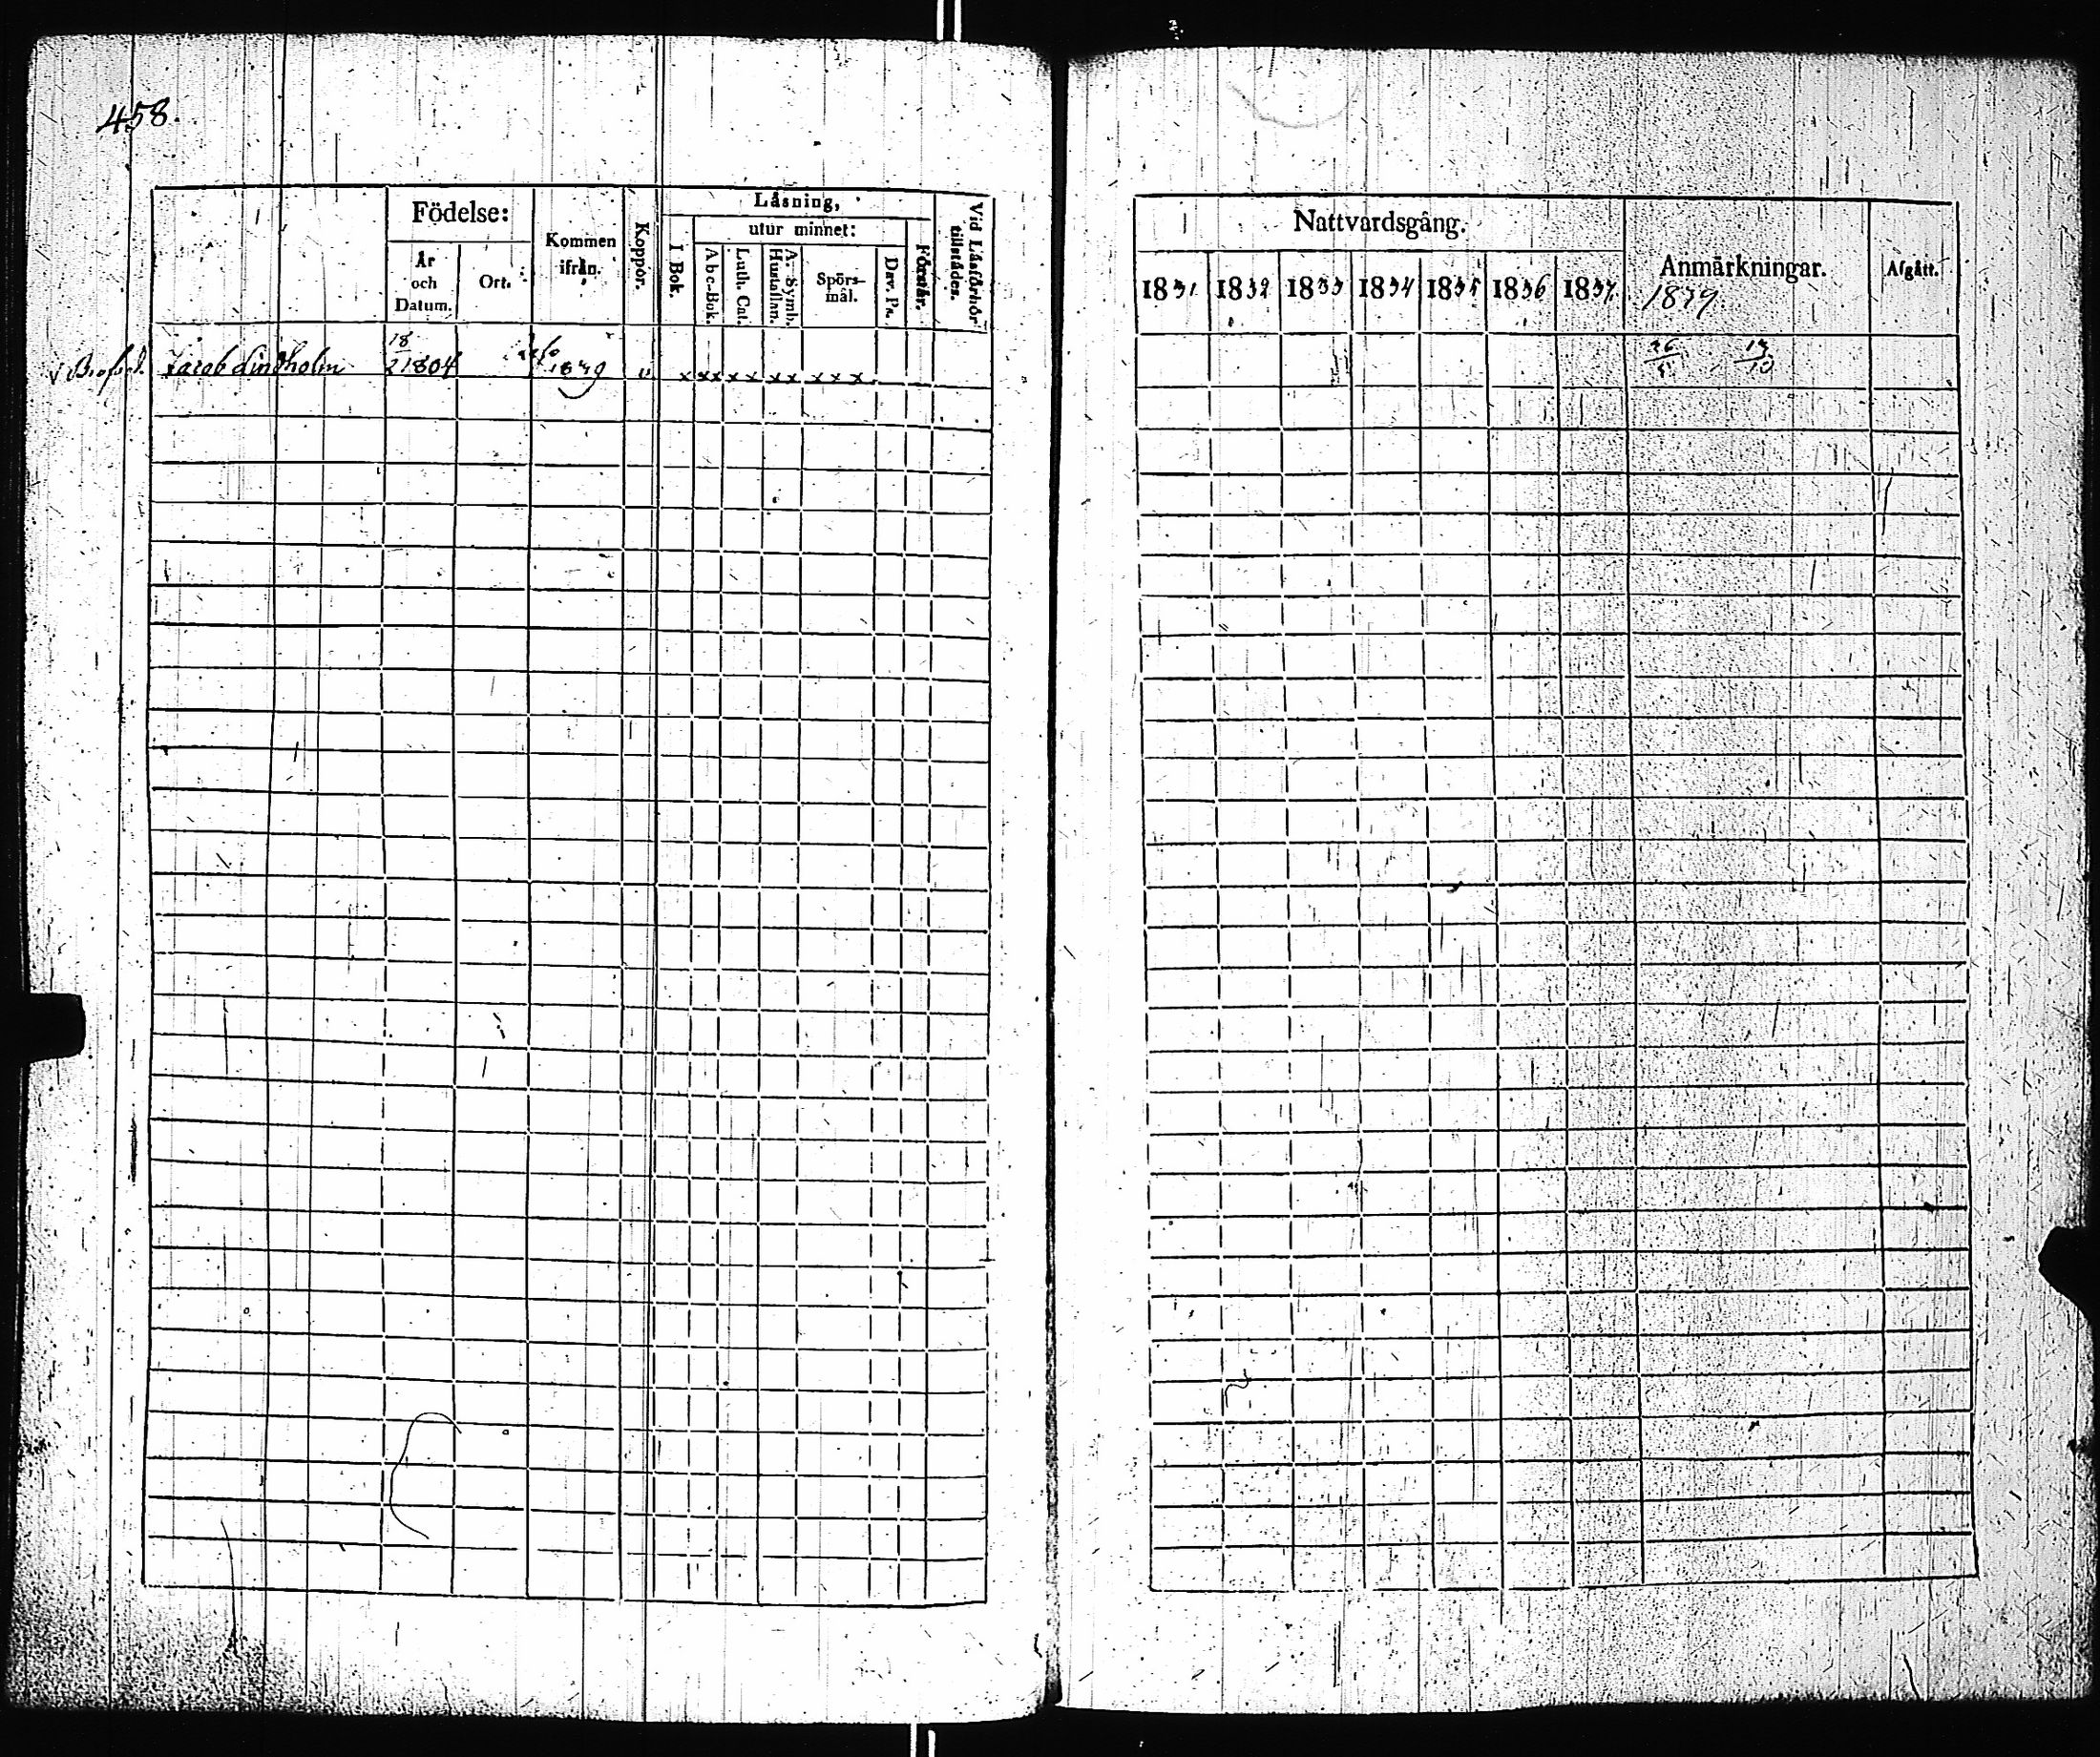 458.
Födelse:
År och Datum.
Ort.
Kommen ifrån.
Koppor.
Läsning,
I Bok.
utur minnet:
Abc-Bok.
Luth. Cat.
A. Symb. Hustaflan.
Spörs-mål.
Dav. Ps.
Förstår.
Vid Läsförhör tillstädes.
Jacob Lindholm 18/2 1804 1839 u x xx xx xx xxx
Nattvardsgång.
1831 1832 1833 1834 1835 1836 1837
Anmärkningar.
1839
Afgått.
26/5 13/10